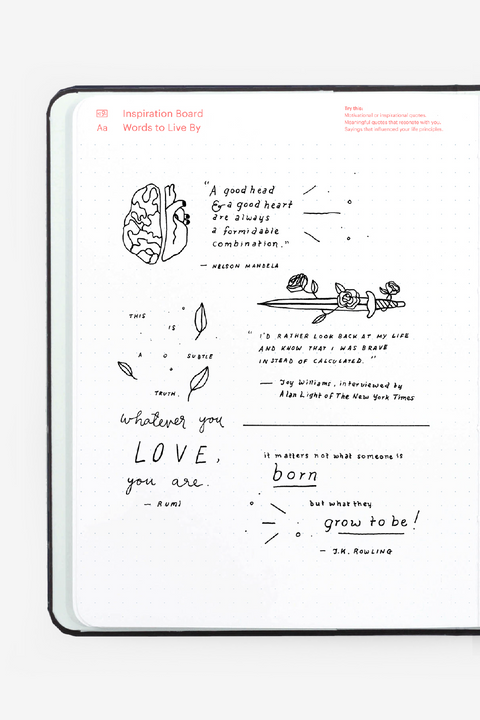 Inspiration Board
Aa Words to Live By
Try this:
Motivational or inspirational quotes.
Meaningful quotes that resonate with you.
Sayings that influenced your life principles.
"A good head
& a good heart
are always
a formidable
combination."
— NELSON MANDELA
"I'D RATHER LOOK BACK AT MY LIFE
AND KNOW THAT I WAS BRAVE
INSTEAD OF CALCULATED."
— Joy Williams, interviewed by
Alan Light of The New York Times
THIS
IS
A SUBTLE
TRUTH.
whatever you
LOVE,
you are.
— RUMI
it matters not what someone is
born
but what they
grow to be!
— J.K. ROWLING